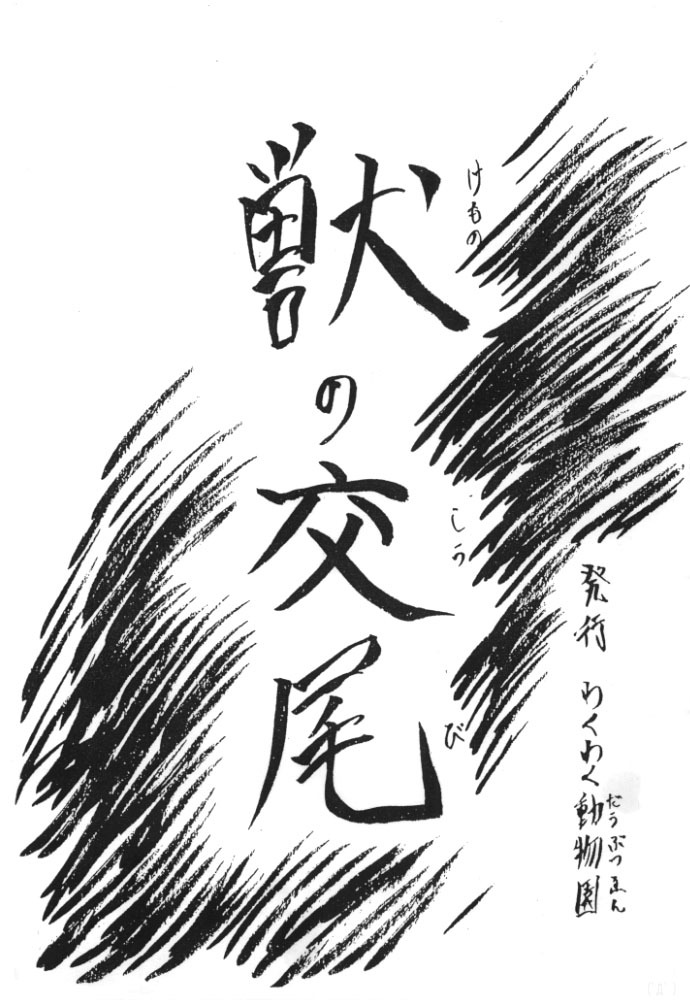 獣の交尾
けもの こうび
発行 わくわく動物園
どうぶつえん